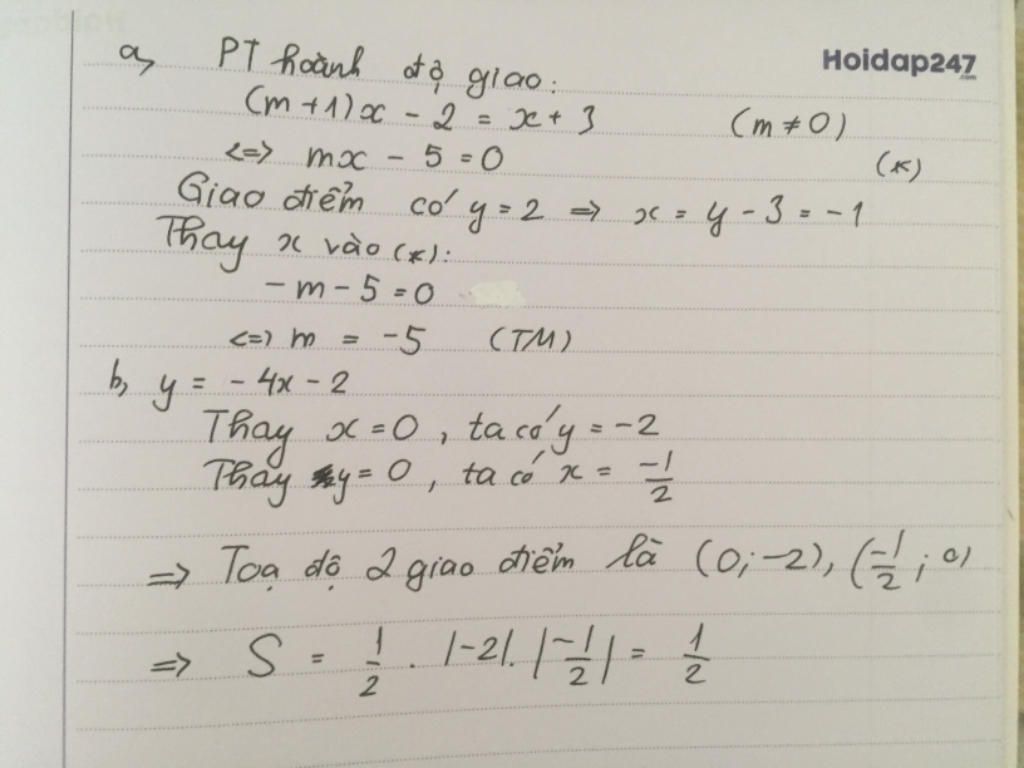 a, PT hoành độ giao:
Hoidap247.com
(m + 1)x - 2 = x + 3 (m ≠ 0)
<=> mx - 5 = 0 (*)
Giao điểm có y = 2 => x = y - 3 = -1
Thay x vào (*):
-m - 5 = 0
<=> m = -5 (TM)
b, y = -4x - 2
Thay x = 0, ta có y = -2
Thay y = 0, ta có x = -1/2
=> Toạ độ 2 giao điểm là (0; -2), (-1/2; 0)
=> S = 1/2 . |-2|. |-1/2| = 1/2